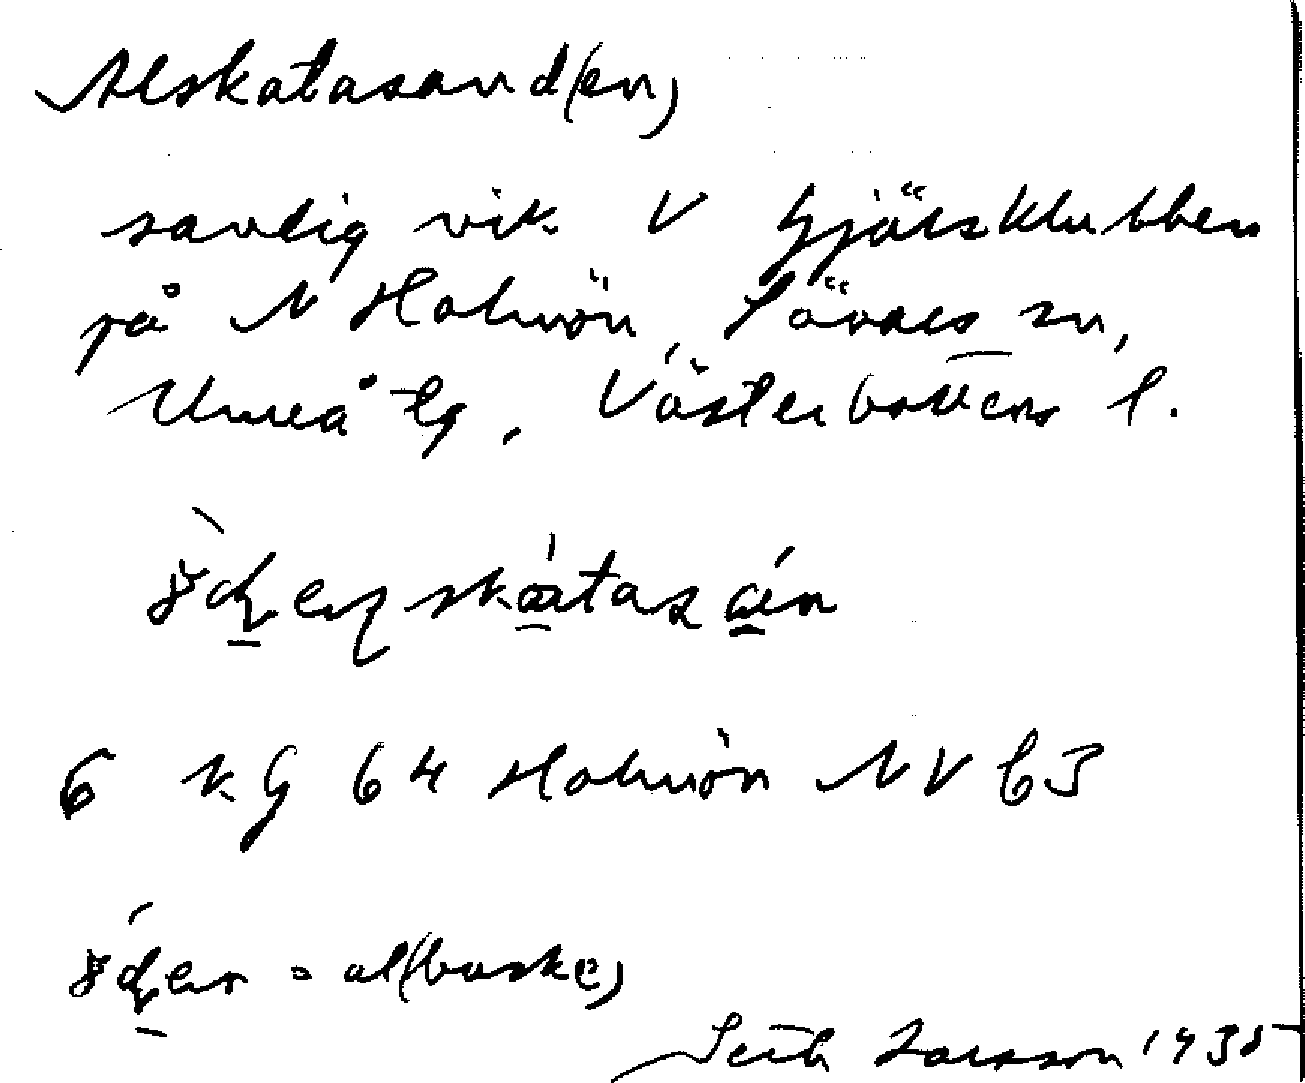 Alskatasand(en)
sandig vik V Gjälsklubben
på N Holmön, Sävars sn,
Umeå tg, Västerbottens l.
6 KG 64 Holmön NV 63
= al(buske)
Seth Larsson 1935